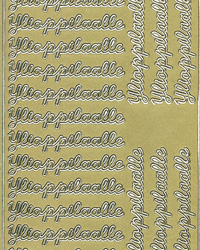 Ylioppilaalle
Ylioppilaalle
Ylioppilaalle
Ylioppilaalle
Ylioppilaalle
Ylioppilaalle
Ylioppilaalle
Ylioppilaalle
Ylioppilaalle
Ylioppilaalle
Ylioppilaalle
Ylioppilaalle
Ylioppilaalle
Ylioppilaalle
Ylioppilaalle
Ylioppilaalle
Ylioppilaalle
Ylioppilaalle
Ylioppilaalle